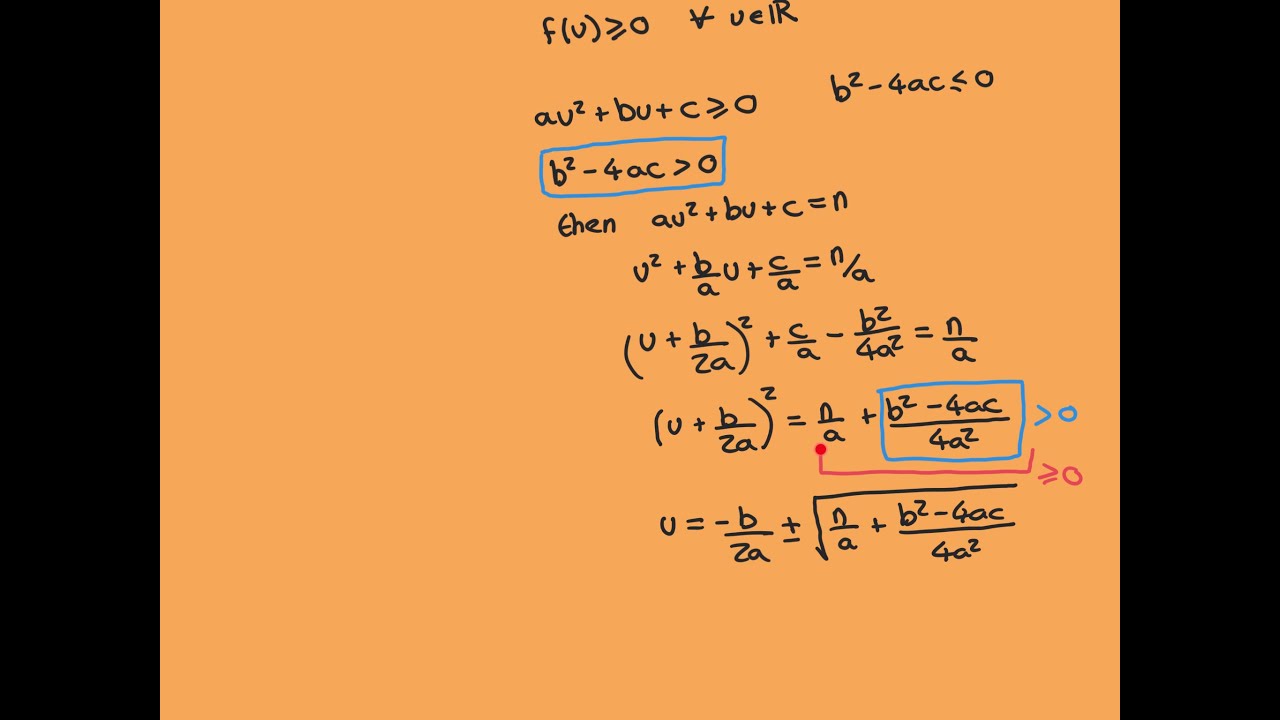 f(u) ⩾ 0 ∀ u∈ℝ
b² - 4ac ≤ 0
au² + bu + c ⩾ 0
b² - 4ac > 0
then au² + bu + c = n
u² + b/a u + c/a = n/a
(u + b/2a)² + c/a - b²/4a² = n/a
(u + b/2a)² = n/a + (b² - 4ac)/4a² > 0
⩾ 0
u = -b/2a ± √(n/a + (b² - 4ac)/4a²)